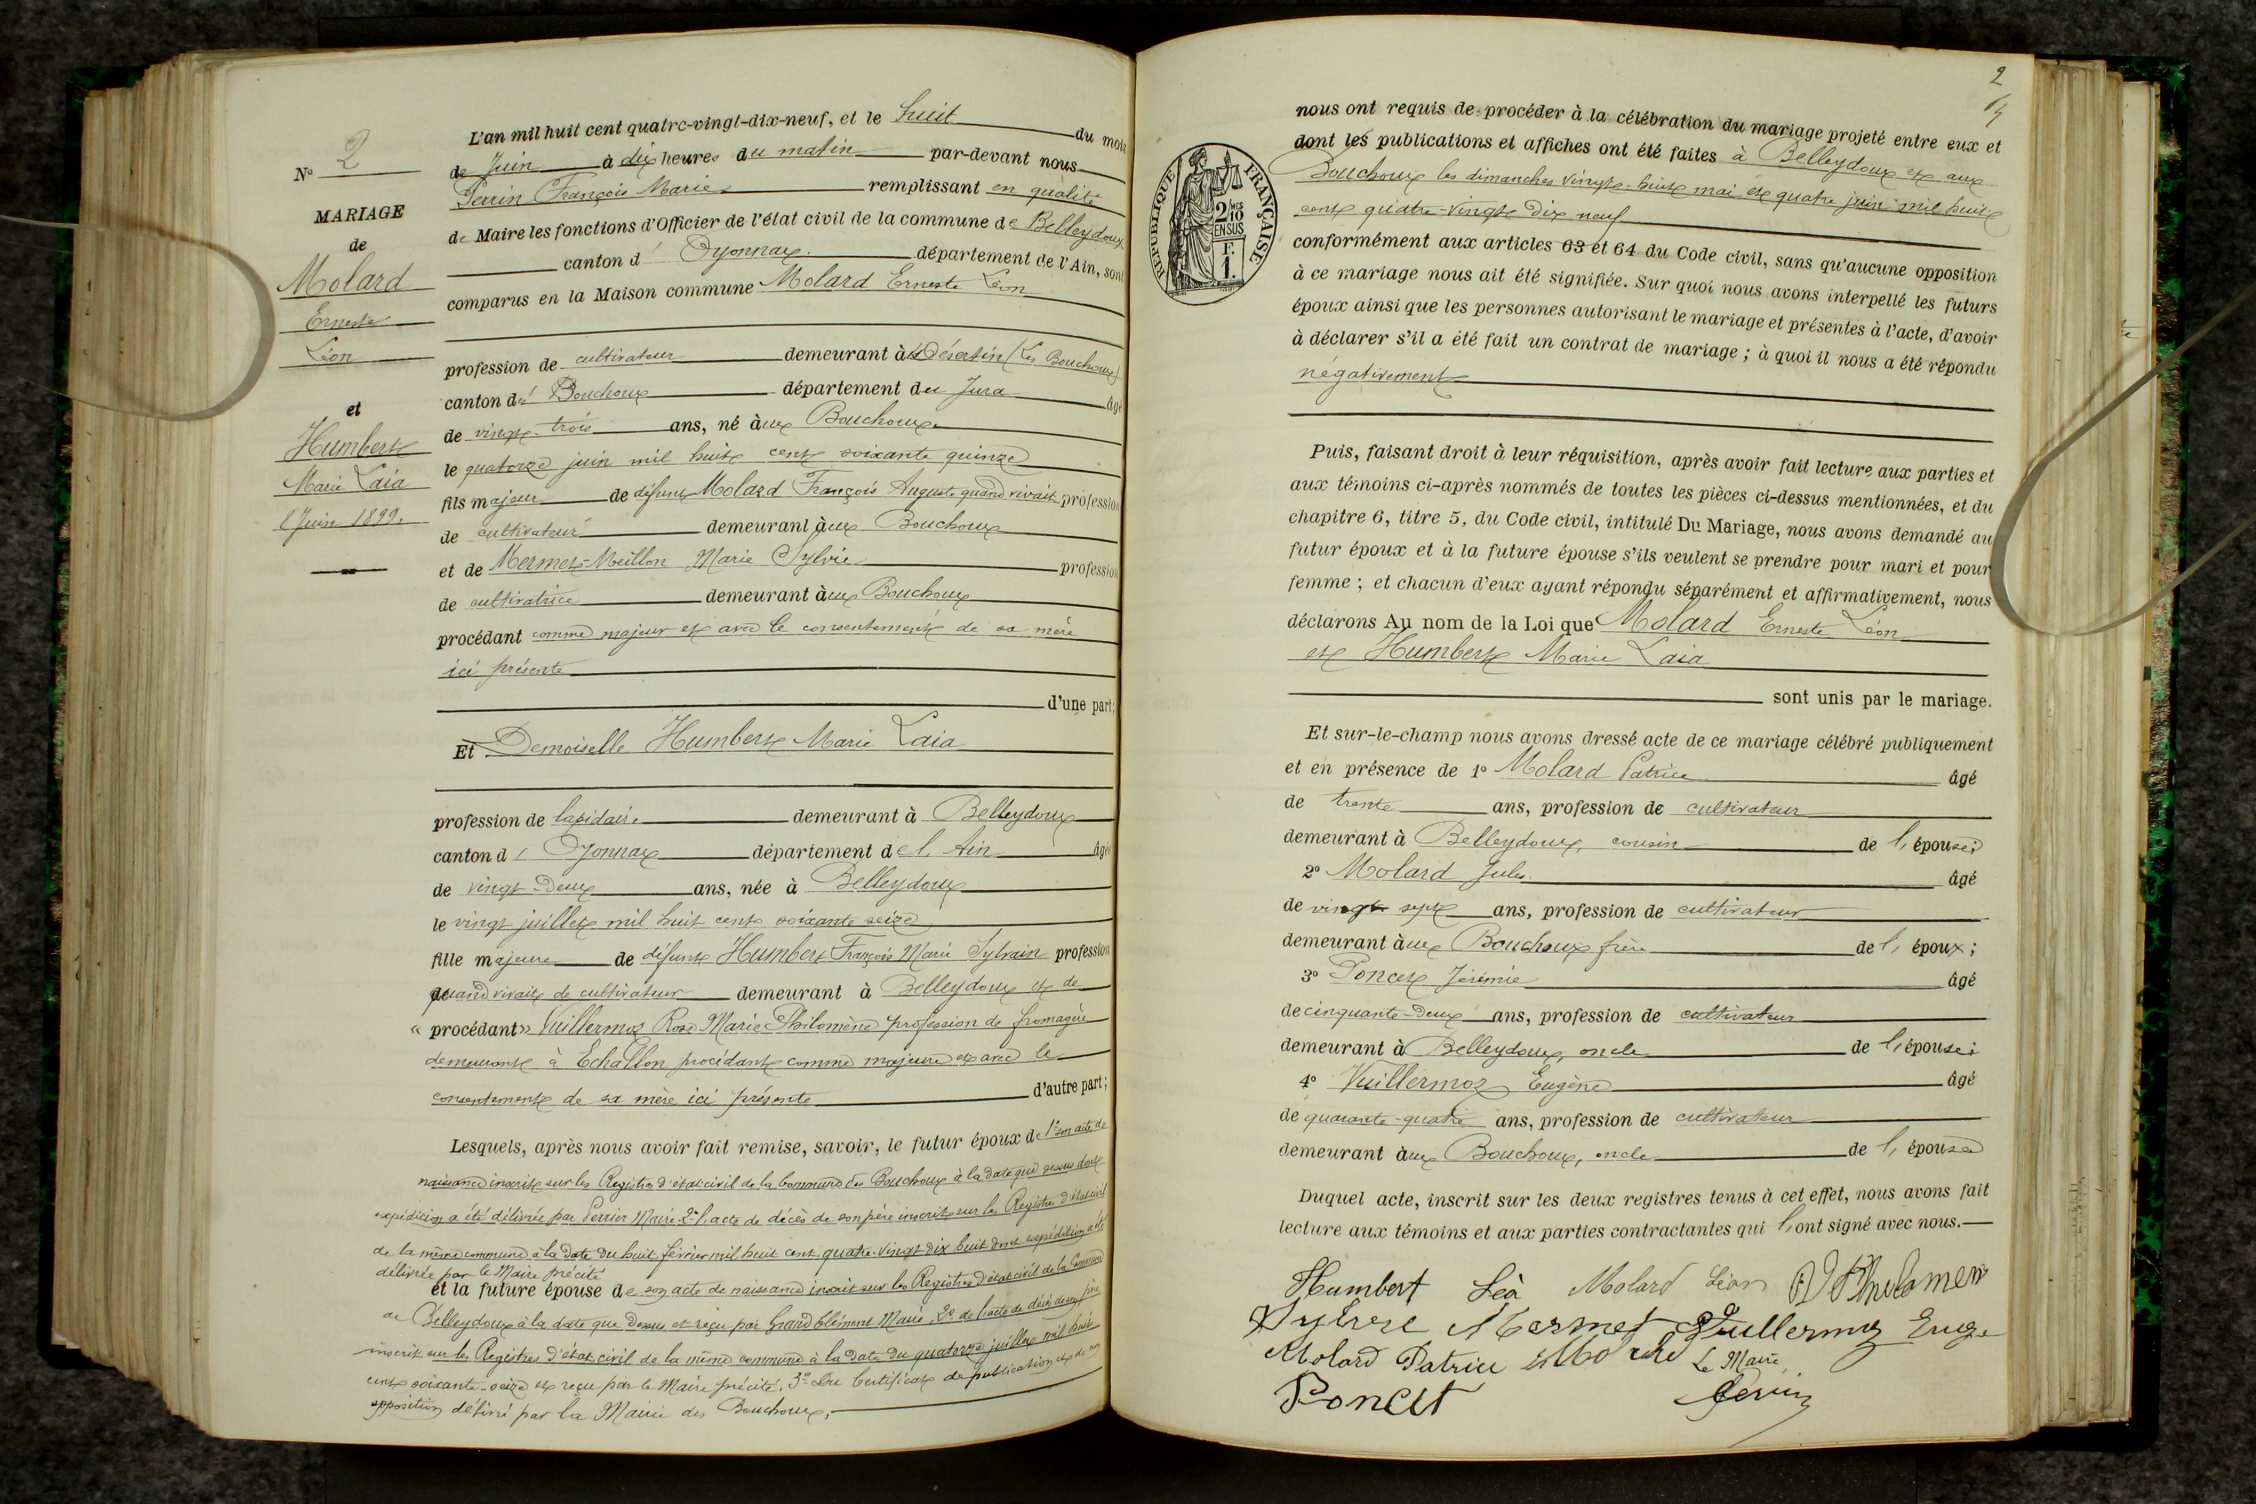 N° 2
MARIAGE
de
Molard
Erneste
Léon
et
Humbert
Marie Laia
8 Juin 1899.
L'an mil huit cent quatre-vingt-dix-neuf, et le huit du mois
de Juin à dix heures du matin par-devant nous
Perrin François Marie remplissant en qualité
de Maire les fonctions d'Officier de l'état civil de la commune de Belleydoux
canton d' Oyonnax département de l'Ain, sont
comparus en la Maison commune Molard Erneste Léon
profession de cultivateur demeurant à Désertin (Les Bouchoux)
canton des Bouchoux département du Jura âgé
de vingt-trois ans, né aux Bouchoux
le quatorze juin mil huit cent soixante quinze
fils majeur de défunt Molard François Auguste quand vivait profession
de cultivateur demeurant aux Bouchoux
et de Mermet-Meillon Marie Sylvie profession
de cultivatrice demeurant aux Bouchoux
procédant comme majeur et avec le consentement de sa mère
ici présente
d'une part;
Et Demoiselle Humbert Marie Laia
profession de lapidaire demeurant à Belleydoux
canton d' Oyonnax département de l'Ain âgée
de vingt-deux ans, née à Belleydoux
le vingt juillet mil huit cent soixante seize
fille majeure de défunt Humbert François Marie Sylvain profession
quand vivait de cultivateur demeurant à Belleydoux et de
« procédant » Vuillermoz Rose Marie Philomène profession de fromagère
demeurant à Echallon procédant comme majeure et avec le
consentement de sa mère ici présente d'autre part;
Lesquels, après nous avoir fait remise, savoir, le futur époux de 1° son acte de
naissance inscrit sur les Registres d'état civil de la Commune des Bouchoux à la date que dessus dont
expédition a été délivrée par Perrier Maire. 2° l'acte de décès de son père inscrit sur les Registres d'état civil
de la même commune à la date du huit février mil huit cent quatre-vingt dix huit dont expédition a été
délivrée par le Maire précité
et la future épouse de son acte de naissance inscrit sur les Registres d'état civil de la Commune
de Belleydoux à la date que dessus et reçu par Grandclément Maire. 2° de l'acte de décès de son père
inscrit sur les Registres d'état civil de la même commune à la date du quatorze juillet mil huit
cent soixante-seize et reçu par le Maire précité. 3° Du Certificat de publication et de non
opposition délivré par la Mairie des Bouchoux,
2
nous ont requis de procéder à la célébration du mariage projeté entre eux et
dont les publications et affiches ont été faites à Belleydoux et aux
Bouchoux les dimanches vingt-huit mai et quatre juin mil huit
cent quatre-vingt dix neuf
RÉPUBLIQUE FRANÇAISE
2/10 EN SUS
F. 1.
conformément aux articles 63 et 64 du Code civil, sans qu'aucune opposition
à ce mariage nous ait été signifiée. Sur quoi nous avons interpellé les futurs
époux ainsi que les personnes autorisant le mariage et présentes à l'acte, d'avoir
à déclarer s'il a été fait un contrat de mariage ; à quoi il nous a été répondu
négativement
Puis, faisant droit à leur réquisition, après avoir fait lecture aux parties et
aux témoins ci-après nommés de toutes les pièces ci-dessus mentionnées, et du
chapitre 6, titre 5, du Code civil, intitulé Du Mariage, nous avons demandé au
futur époux et à la future épouse s'ils veulent se prendre pour mari et pour
femme ; et chacun d'eux ayant répondu séparément et affirmativement, nous
déclarons Au nom de la Loi que Molard Erneste Léon
et Humbert Marie Laia
sont unis par le mariage.
Et sur-le-champ nous avons dressé acte de ce mariage célébré publiquement
et en présence de 1° Molard Patrice âgé
de trente ans, profession de cultivateur
demeurant à Belleydoux, cousin de l'épouse;
2° Molard Jules âgé
de vingt sept ans, profession de cultivateur
demeurant aux Bouchoux frère de l'époux;
3° Poncet Jérémie âgé
de cinquante-deux ans, profession de cultivateur
demeurant à Belleydoux, oncle de l'épouse;
4° Vuillermoz Eugène âgé
de quarante-quatre ans, profession de cultivateur
demeurant aux Bouchoux, oncle de l'épouse
Duquel acte, inscrit sur les deux registres tenus à cet effet, nous avons fait
lecture aux témoins et aux parties contractantes qui l'ont signé avec nous.
Humbert Léa Molard Léon Philomen
Mermet Vuillermoz Eug
Molard Patrice Le Maire
Poncet Perrin